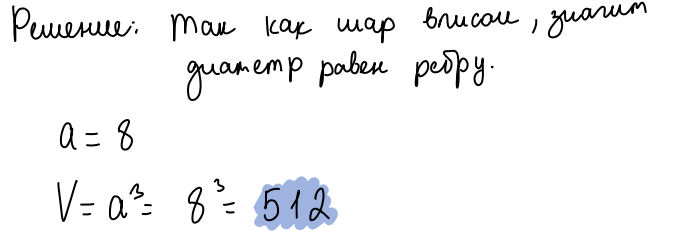 Решение: Так как шар вписан, значит
диаметр равен ребру.
a = 8
V = a³ = 8³ = 512